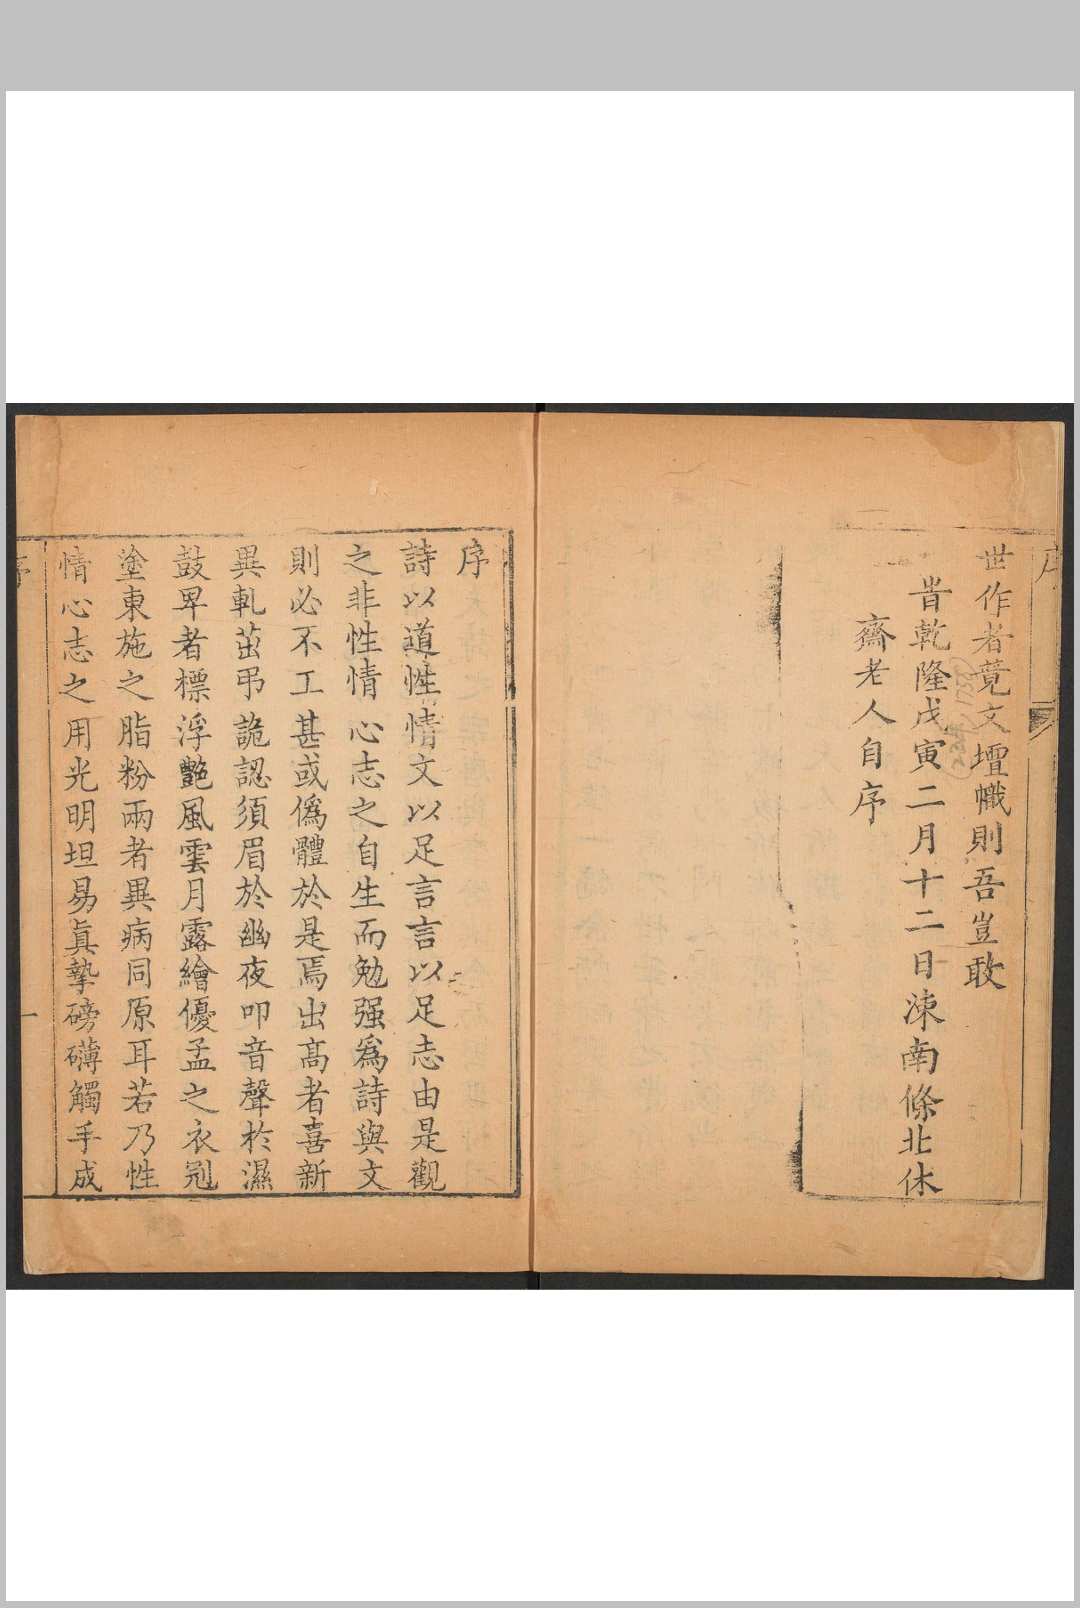 世作者竟文壇幟則吾豈敢
旹乾隆戊寅二月十二日涑南條北休
齋老人自序
序
詩以道性情文以足言言以足志由是觀
之非性情心志之自生而勉强爲詩與文
則必不工甚或僞體於是焉出高者喜新
異軋茁弔詭認須眉於幽夜叩音聲於濕
鼓卑者標浮艷風雲月露繪優孟之衣冠
塗東施之脂粉兩者異病同原耳若乃性
情心志之用光明坦易眞摯磅礴觸手成
序
一